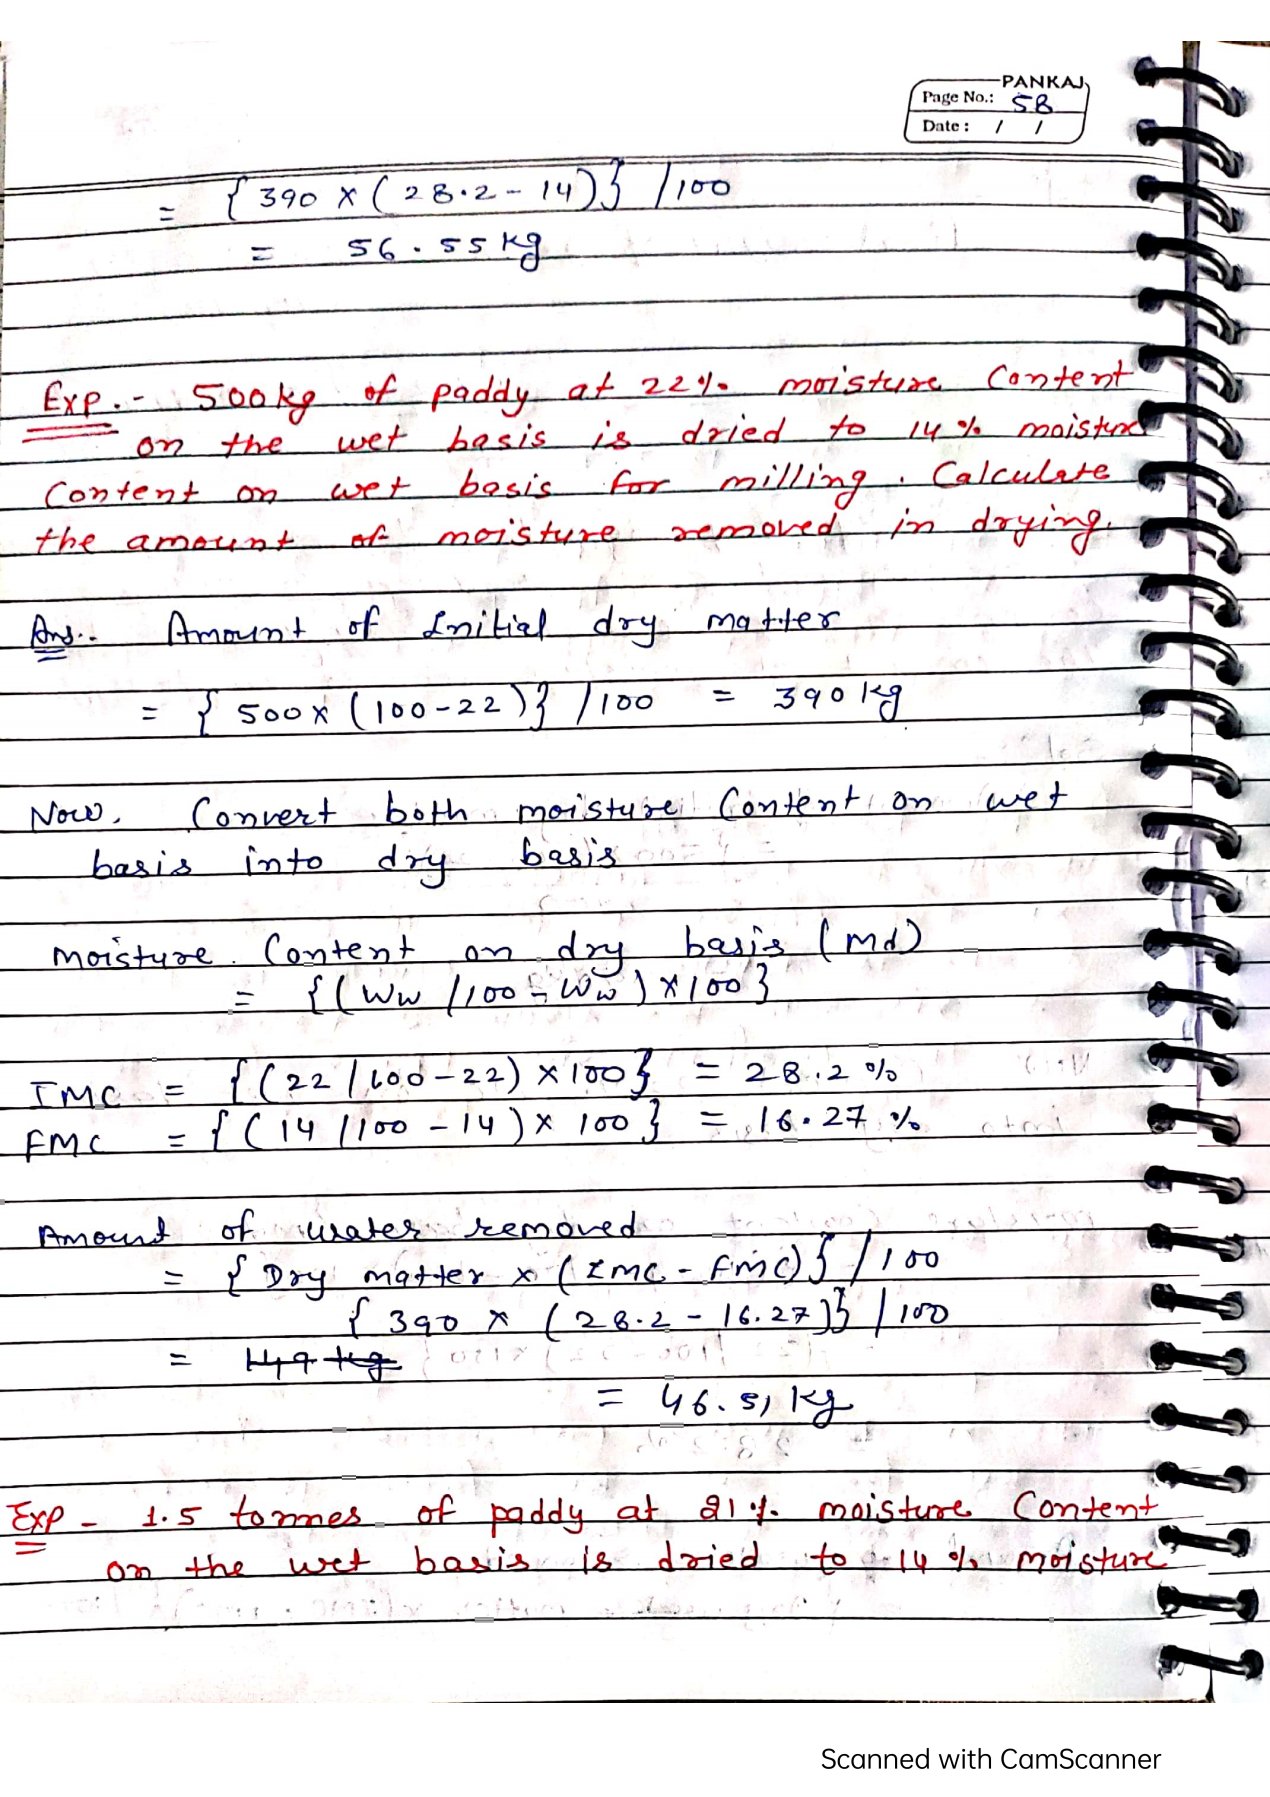 PANKAJ
Page No.: 58
Date : / /
= { 390 × ( 28.2 - 14)} /100
= 56.55 kg
Exp.- 500kg of paddy at 22% moisture Content
on the wet basis is dried to 14% moisture
Content on wet basis for milling. Calculate
the amount of moisture removed in drying.
Ans.. Amount of Initial dry matter
= { 500× (100-22)} /100 = 390 kg
Now, Convert both moisture Content on wet
basis into dry basis
Moisture Content on dry basis (Md)
= {(Ww /100 - Ww) × 100}
IMC = {(22 /100-22) ×100} = 28.2 %
FMC = {(14 /100 - 14) × 100} = 16.27 %
Amount of water removed
= {Dry matter × (IMC - FMC)} /100
{ 390 × (28.2 - 16.27)} /100
= 149 kg
= 46.51 kg
Exp - 1.5 tonnes of paddy at 21% moisture Content
on the wet basis is dried to 14% moisture
Scanned with CamScanner